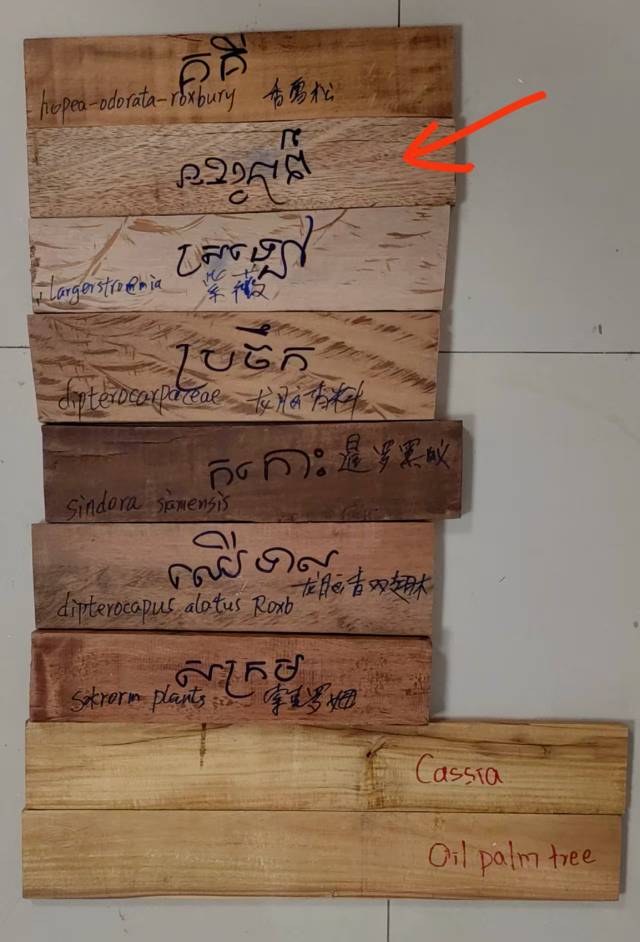 គគី
hopea-odorata-roxbury 香雪松
ស្រឡៅ
Largerstromia 紫薇
ប្រចឹក
dipterocarpaceae 龙脑香科
កកោះ 暹罗黑
sindora siamensis
ឈើទាល
dipterocapus alatus Roxb 龙脑香双翅木
សក្រម
sokrorm plants 索克罗姆
Cassia
Oil palm tree